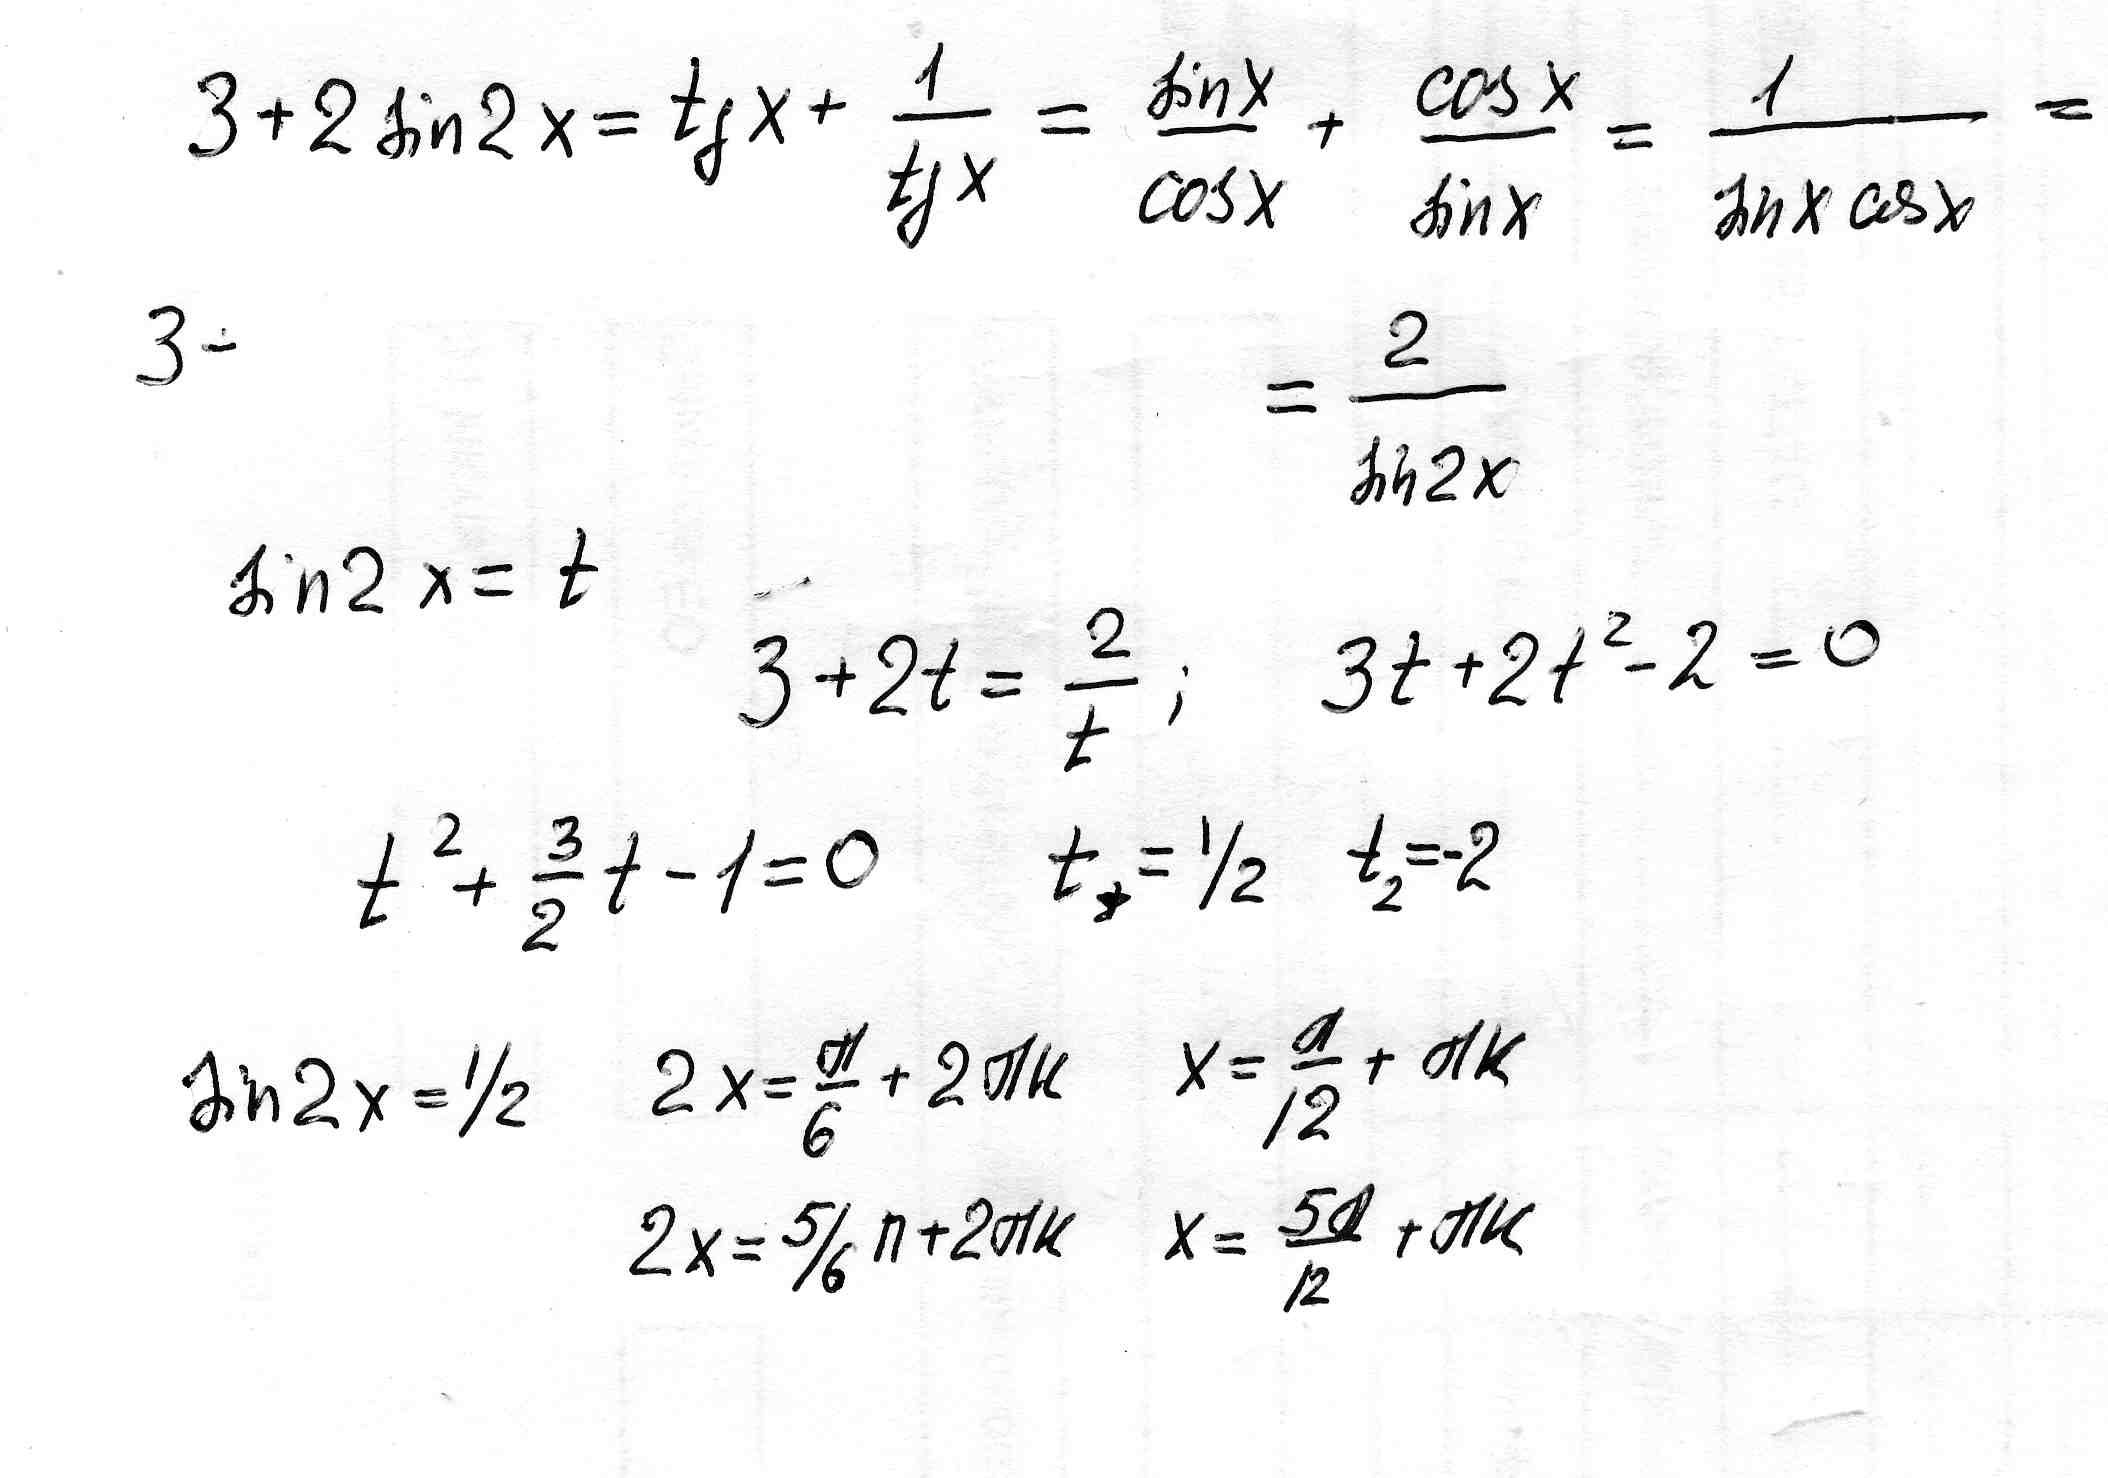 3+2 sin2x = tg x + 1/tg x = sin x/cos x + cos x/sin x = 1/sin x cos x =
3 -
= 2/sin2x
sin2x = t
3+2t = 2/t ; 3t+2t²-2=0
t² + 3/2 t - 1 = 0 t₁ = 1/2 t₂ = -2
sin2x = 1/2 2x = π/6 + 2πk x = π/12 + πk
2x = 5/6 π + 2πk x = 5π/12 + πk